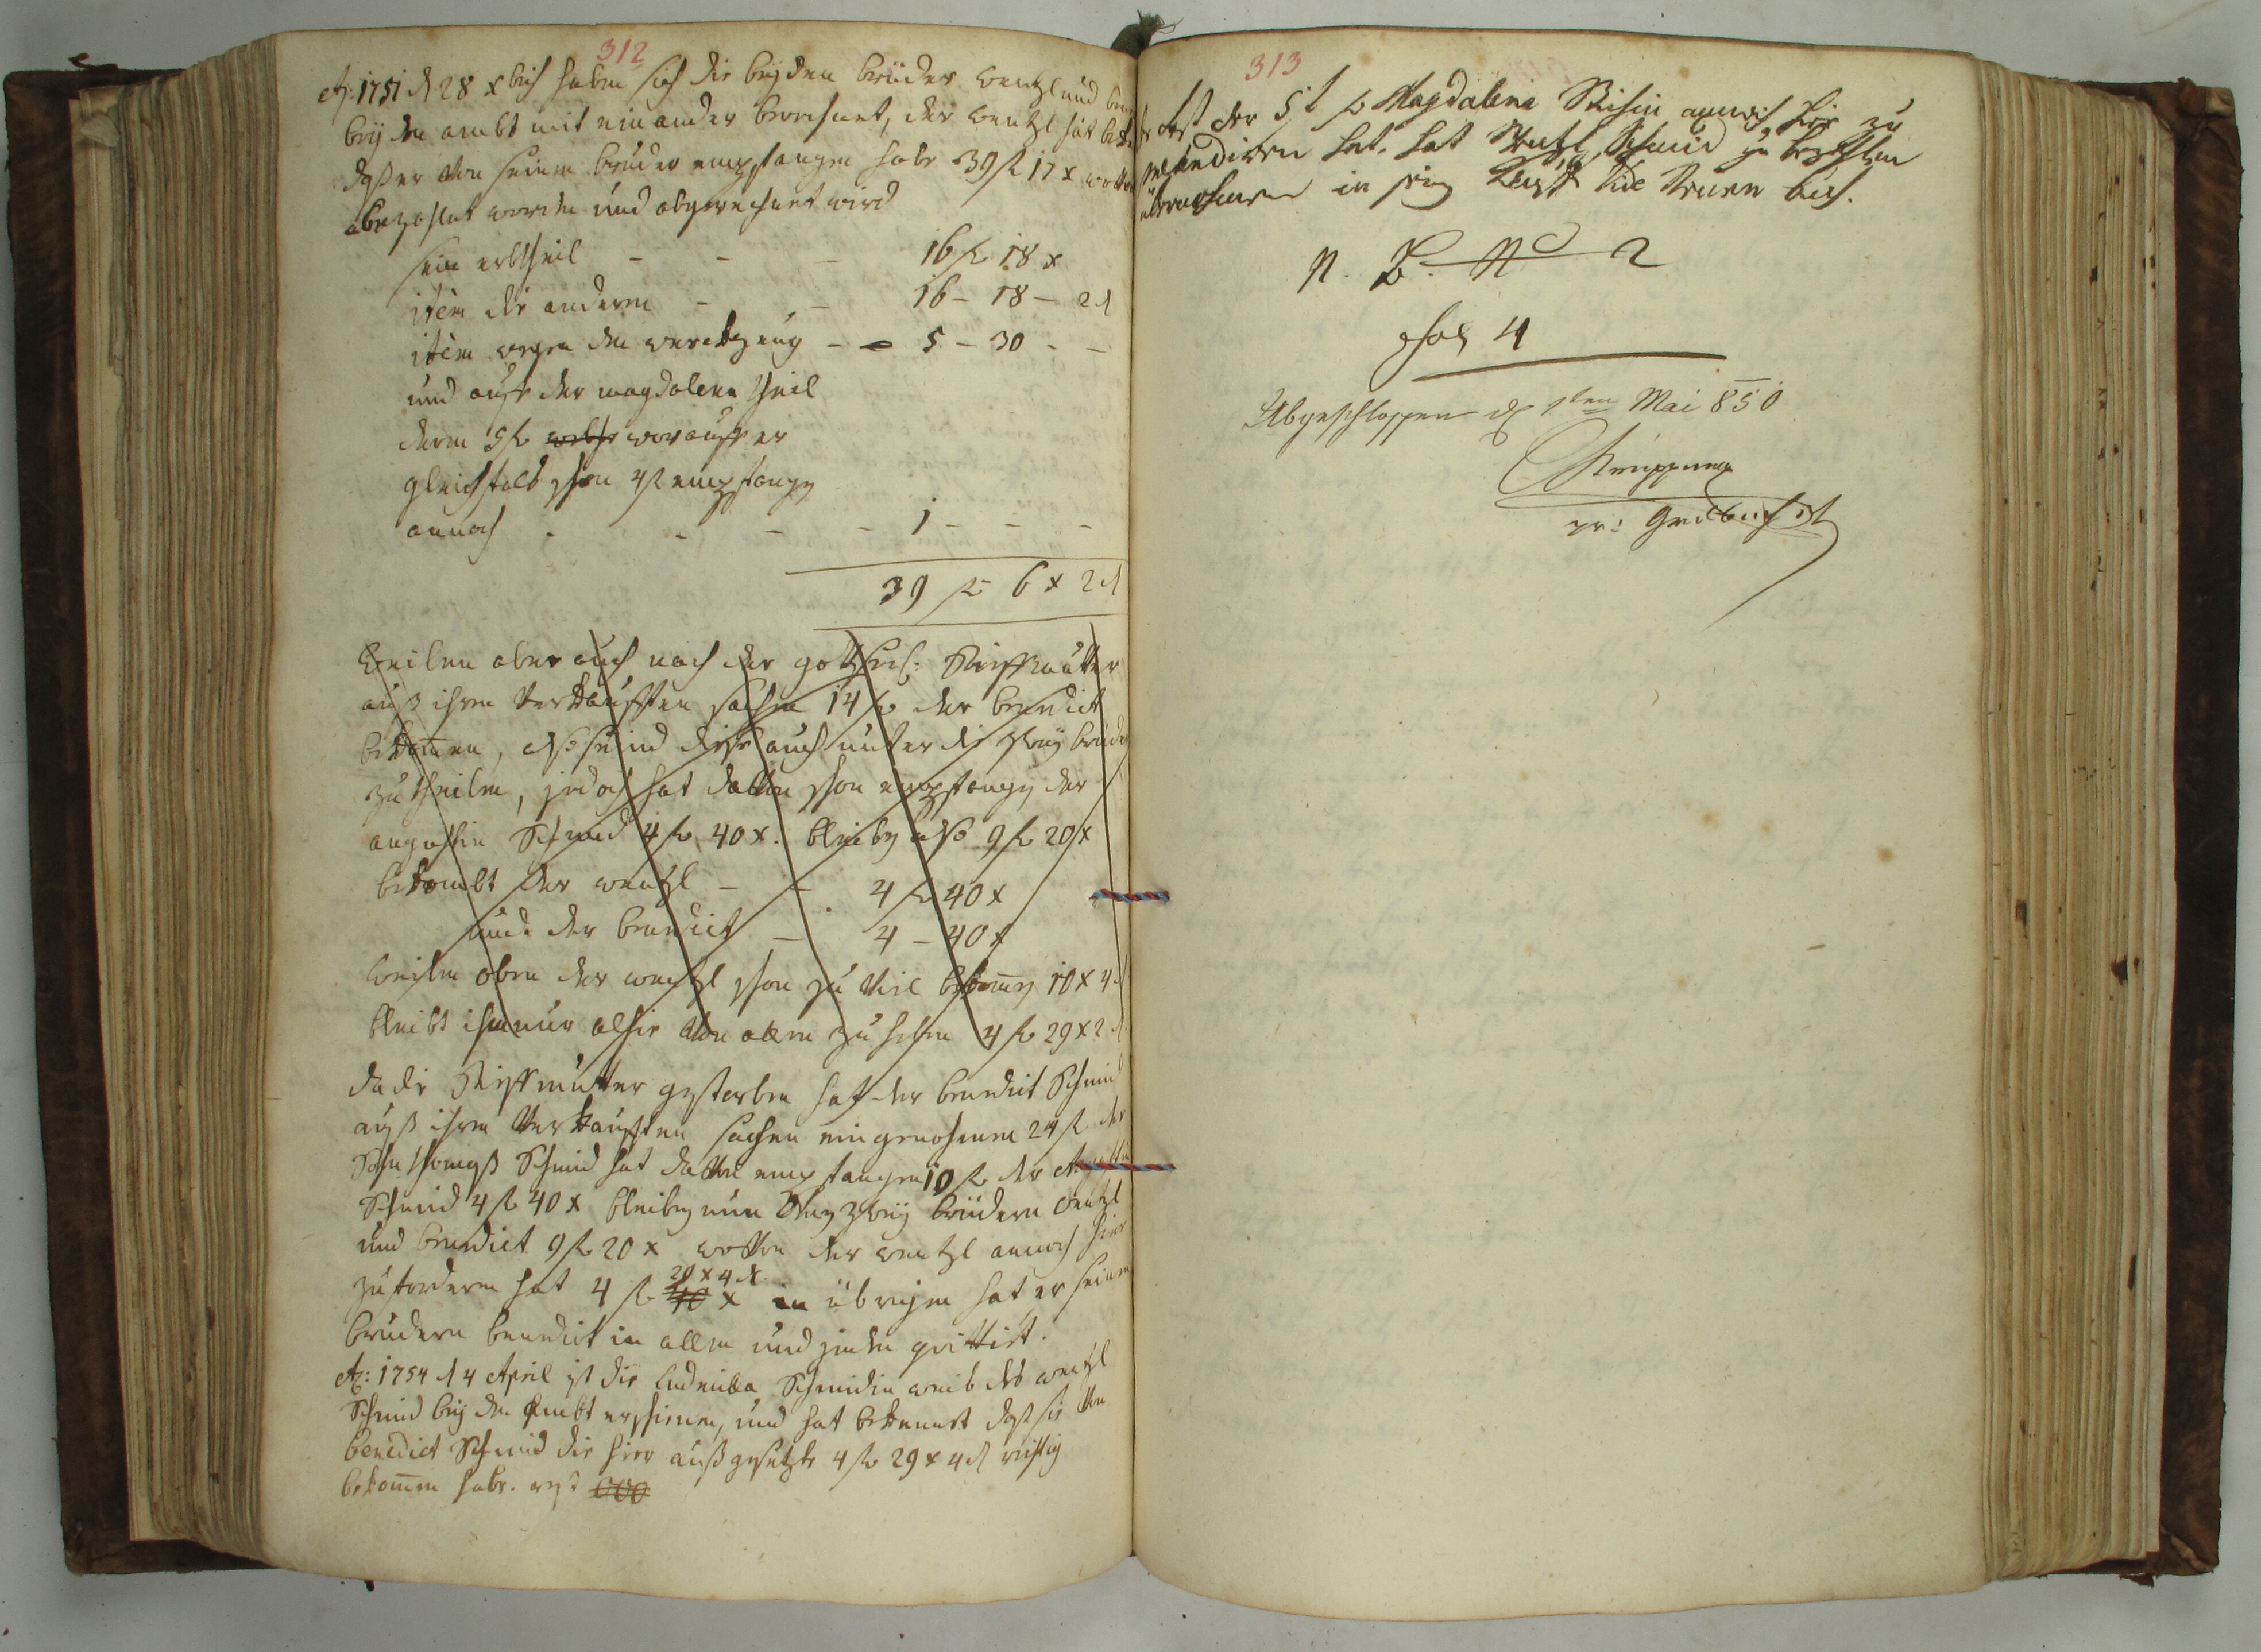 312
Aō: 1751 d 28 xbris haben sich die beyden brüder wentzl und
bey den ambt mit ein ander berechnet, der wentzl hat
daß er von seinem bruder empfangen habe 39 fl 17 x wovon
abezahlet worden und abgerechnet wird
sein erbtheil - - - 16 fl 18 x
item die anderen - - 16 - 18 - 2 d
item wegen den werckzeug - - 5 - 30 - -
und auß der magdalena theil
deren 5 fl worauff er
gleichfals schon 4 fl empfangen
annoch - - - - 1 - - -
39 fl 6 x 2 d
Weilen aber auch nach der gottseel: Stieffmutter
auß ihren verkaufften sachen 14 fl der benedict
bekomen, also seind diese auch unter die zwey brüder
zu theilen, jedoch hat davon schon empfangen der
augustin Schmid 4 fl 40 x. bleiben also 9 fl 20 x
bekombt der wentzl - - 4 fl 40 x
und der benedict - 4 - 40 x
weilen oben der wentzl schon zu viel bekomen 10 x 4 d
bleibt ihm nur alhie von allen zu heben 4 fl 29 x 2 d
da die Stieffmutter gestorben hat der benedict Schmid
auß ihren verkaufften sachen eingenohmen 24 fl der
Schmid hat davon empfangen 10 fl der Augustin
Schmid 4 fl 40 x bleiben nun denen zwey brüdern wentzl
und benedict 9 fl 20 x wovon der wentzl annoch hier
zu fordern hat 4 fl 29 x 4 d 40 x in übrigen hat er seinen
brudern benedict in allen und jeden quittirt.
Aō: 1754 d 4 April ist die Ludmilla Schmidin weib des wentzl
Schmid bey den Ambt erschienen, und hat bekennet daß sie von
benedict Schmid die hier außgesetzte 4 fl 29 x 4 d richtig
bekomen habe. rest 000
313
der 5 fl Magdalena annoch hier zu
hat, hat Wentzl Schmid zu bezahlen
übernohmen in buch.
N. B. Nō 2
Fol 4
Abgeschlossen d 1ten Mai 850